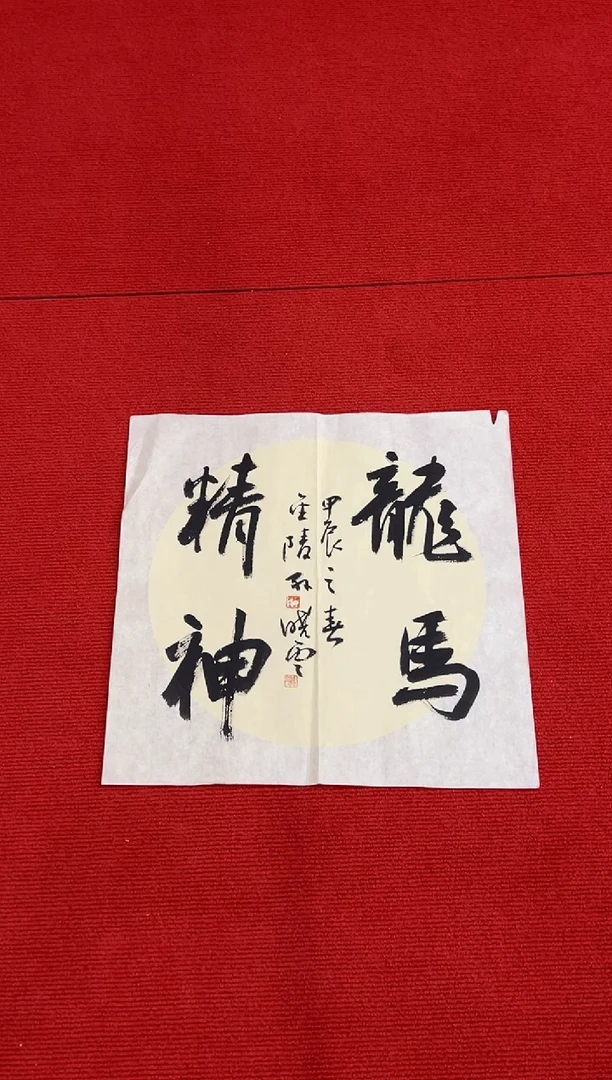 龍馬
精神
甲辰之春
金陵孙晓云